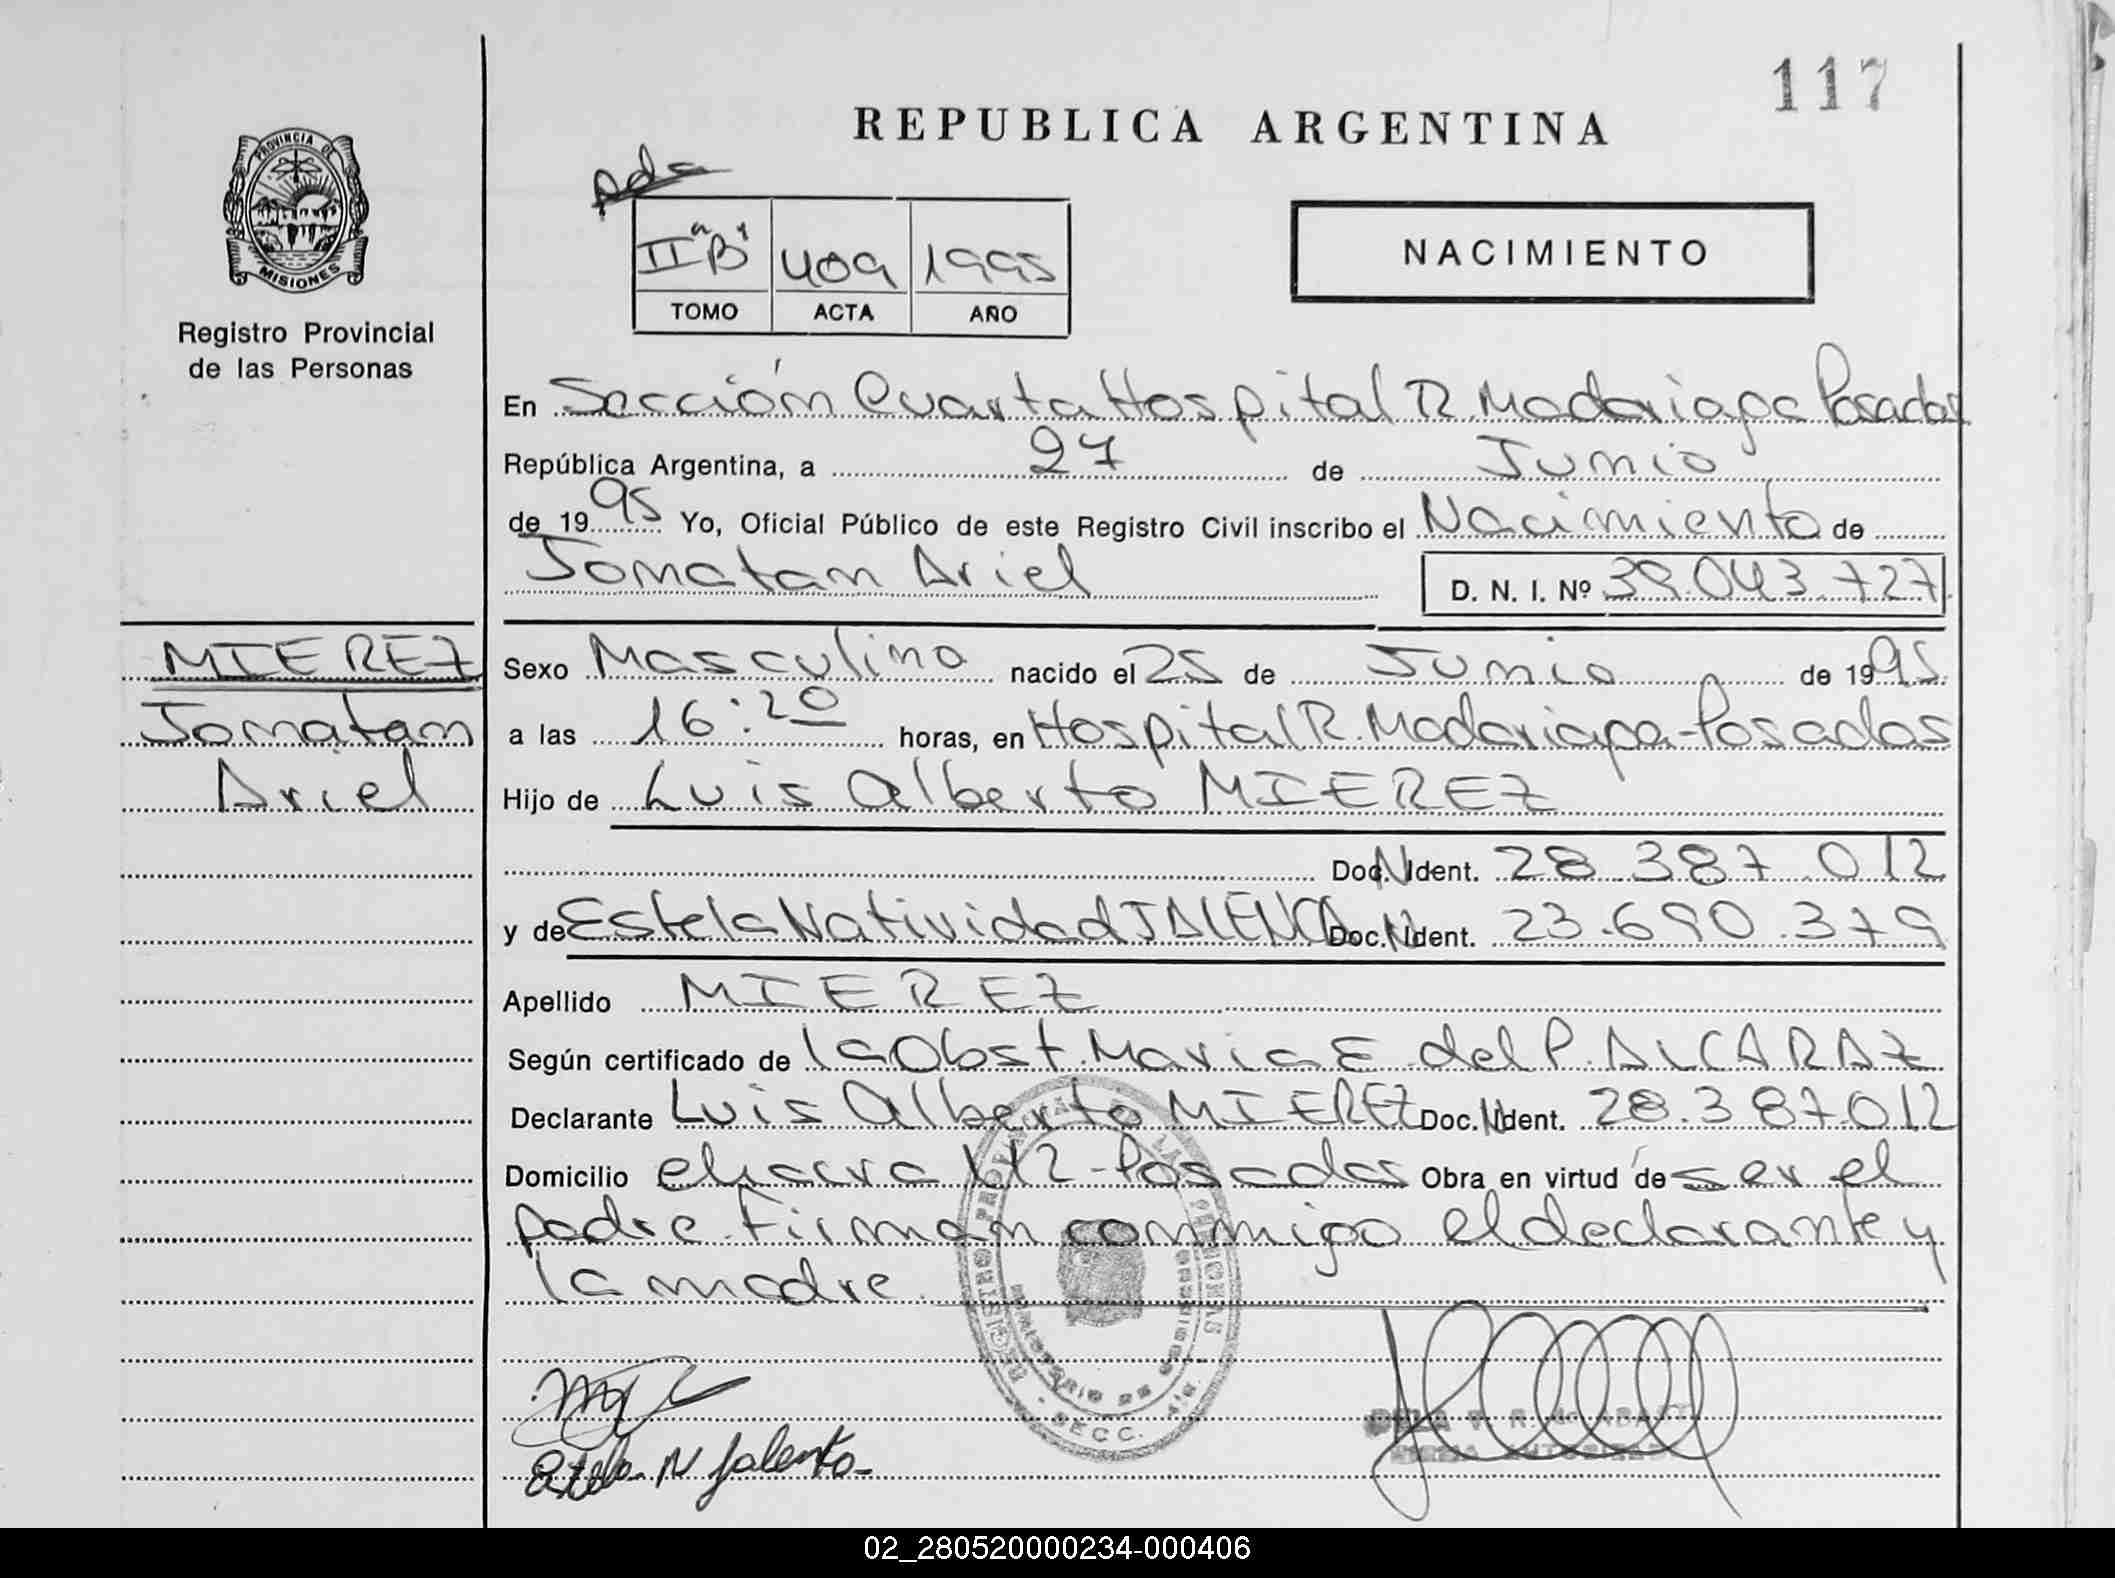 117
REPUBLICA ARGENTINA
pds
PROVINCIA DE
MISIONES
Registro Provincial
de las Personas
II "B" 409 1995
TOMO ACTA AÑO
NACIMIENTO
En Sección Cuarta Hospital R. Madariaga Posadas
República Argentina, a 27 de Junio
de 1995 Yo, Oficial Público de este Registro Civil inscribo el Nacimiento de
Jonatan Ariel D. N. I. Nº 39.043.727
MIEREZ
Jonatan
Ariel
Sexo Masculino nacido el 25 de Junio de 1995.
a las 16:20 horas, en Hospital R. Madariaga-Posadas
Hijo de Luis Alberto MIEREZ
Doc. N. Ident. 28.387.012
y de Estela Natividad Doc. N. Ident. 23.690.379
Apellido MIEREZ
Según certificado de la Obst. Maria E. del P. ALCARAZ
Declarante Luis Alberto MIEREZ Doc. N. Ident. 28.387.012
Domicilio chacra 112-Posadas Obra en virtud de ser el
padre. Firman conmigo el declarante y
la madre.
REGISTRO PROVINCIAL DE LAS PERSONAS
MINISTERIO DE GOBIERNO
SECC. 4ta.
Estela N
02_280520000234-000406